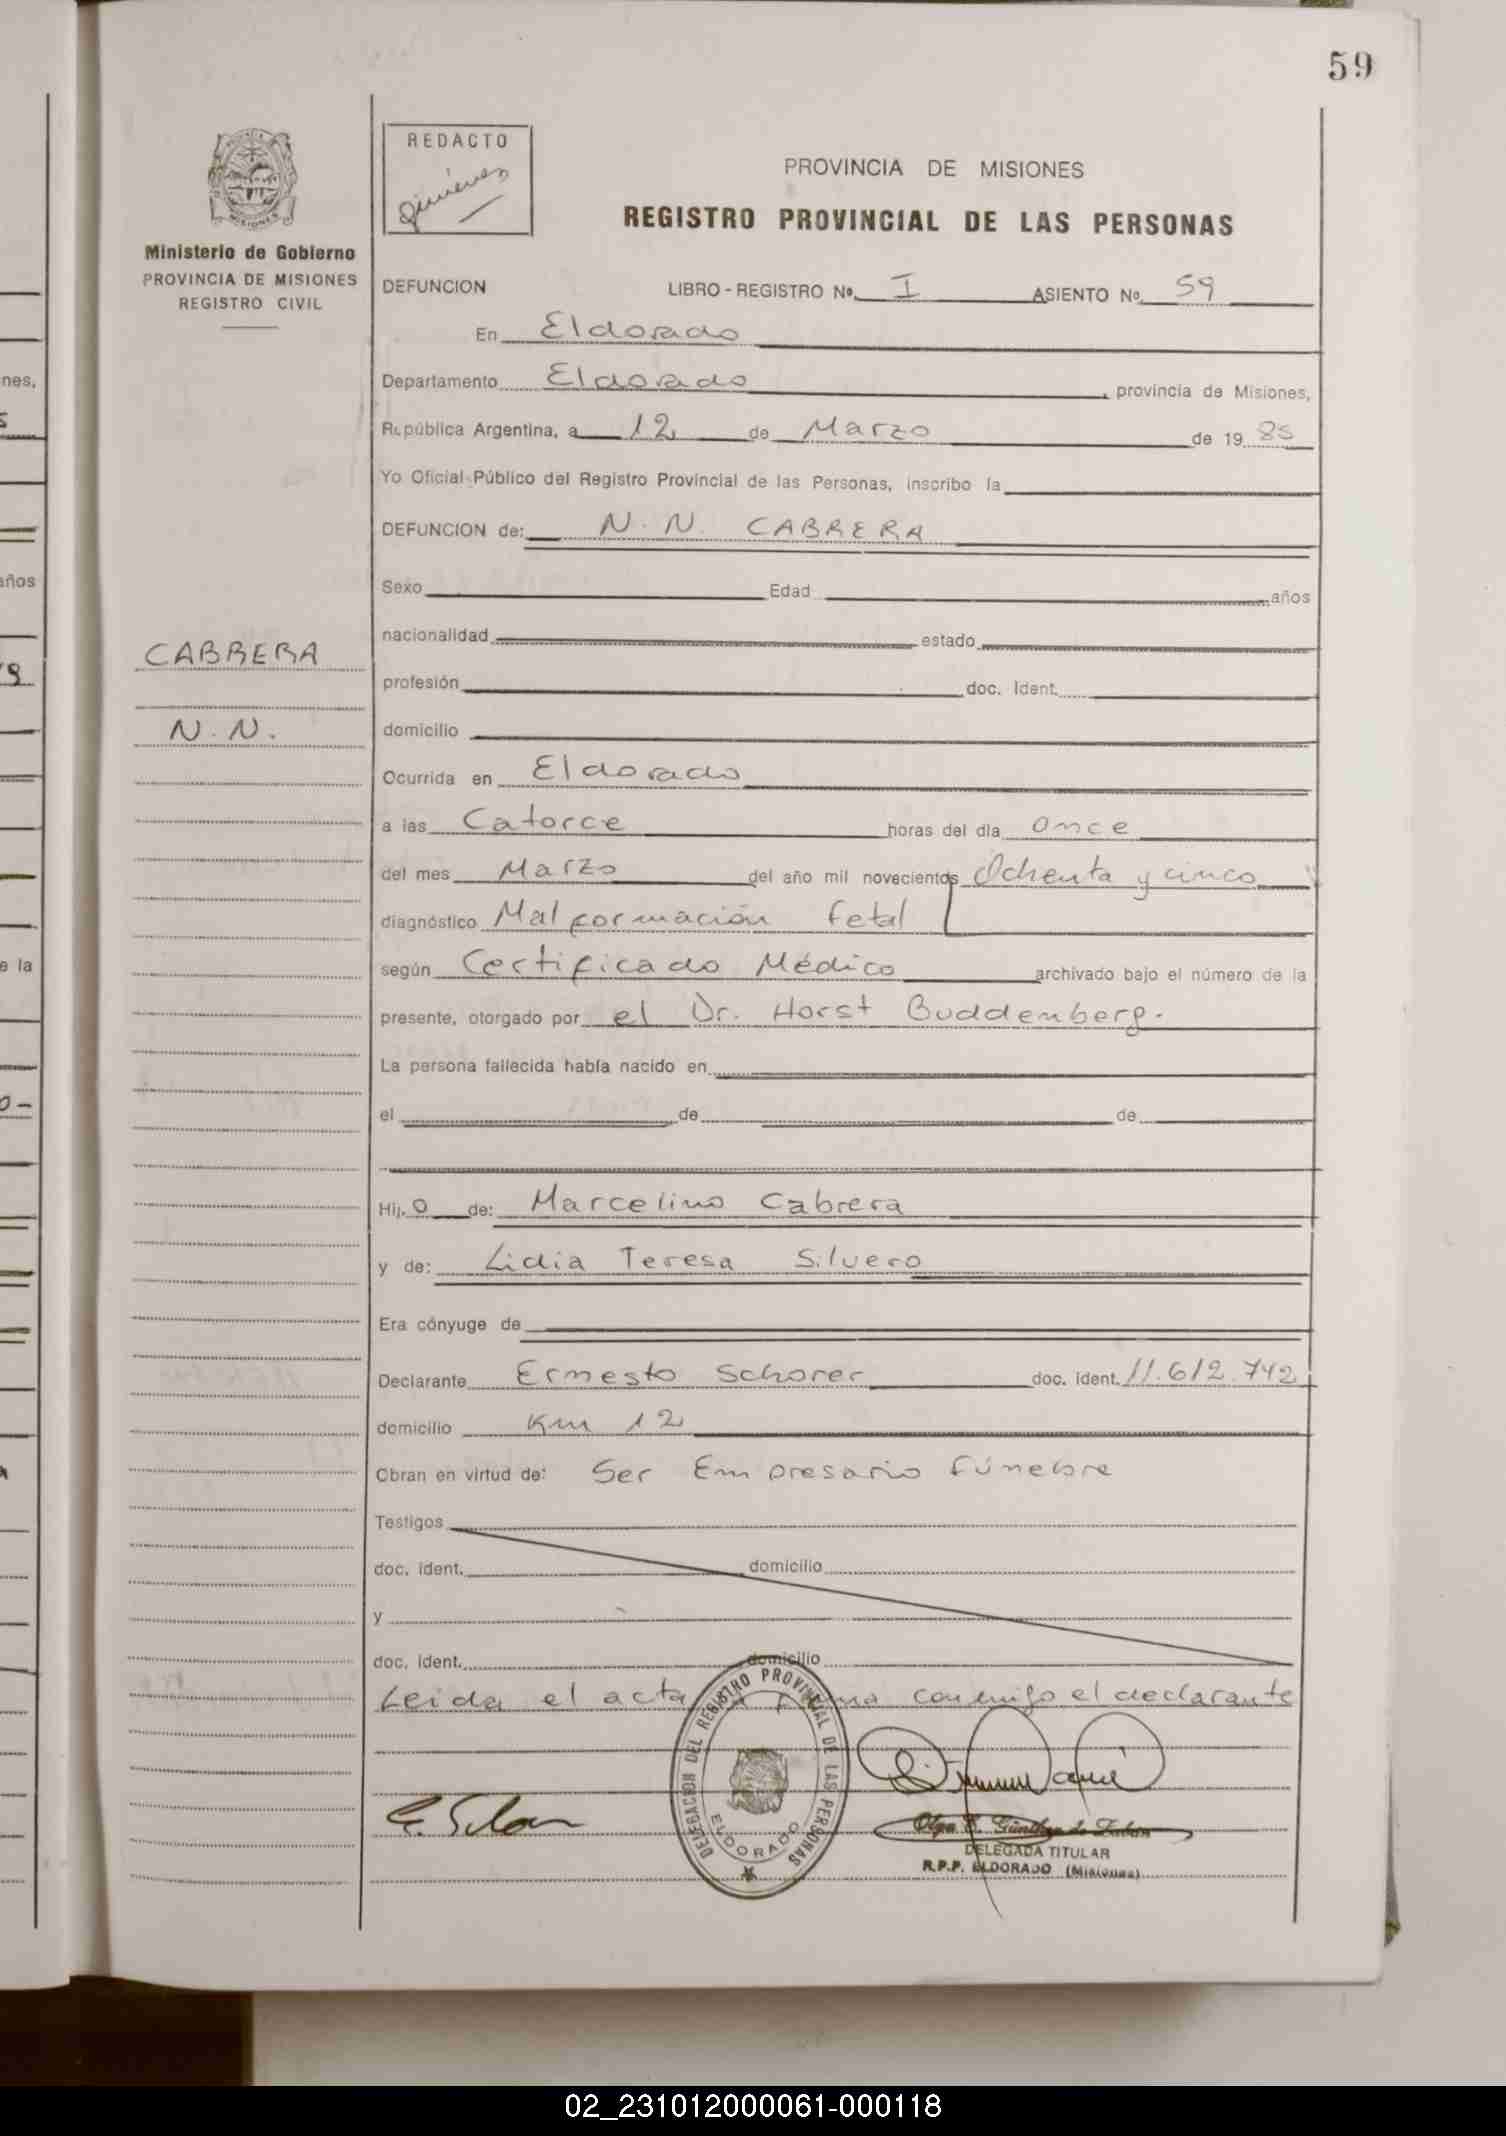 59
REDACTO
Giménez
PROVINCIA DE MISIONES
REGISTRO PROVINCIAL DE LAS PERSONAS
Ministerio de Gobierno
PROVINCIA DE MISIONES
REGISTRO CIVIL
DEFUNCION LIBRO - REGISTRO Nº I ASIENTO Nº 59
En Eldorado
Departamento Eldorado, provincia de Misiones,
República Argentina, a 12 de Marzo de 1985
Yo Oficial Público del Registro Provincial de las Personas, inscribo la
DEFUNCION de: N. N. CABRERA
Sexo Edad años
nacionalidad estado
CABRERA
N. N.
profesión doc. Ident.
domicilio
Ocurrida en Eldorado
a las Catorce horas del día once
del mes Marzo del año mil novecientos Ochenta y cinco
diagnóstico Malformación Fetal
según Certificado Médico archivado bajo el número de la
presente, otorgado por el Dr. Horst Buddenberg.
La persona fallecida había nacido en
el de de
Hij. o de: Marcelino Cabrera
y de: Lidia Teresa Silvero
Era cónyuge de
Declarante Ernesto Schorer doc. ident. 11.612.742
domicilio Km 12
Obran en virtud de: Ser Empresario Fúnebre
Testigos
doc. ident. domicilio
y
doc. ident. domicilio
Leida el acta firma conmigo el declarante
DELEGACION DEL REGISTRO PROVINCIAL DE LAS PERSONAS
ELDORADO
DELEGADA TITULAR
R.P.P. ELDORADO (Misiones)
nes,
5
años
9
e la
0-
02_231012000061-000118